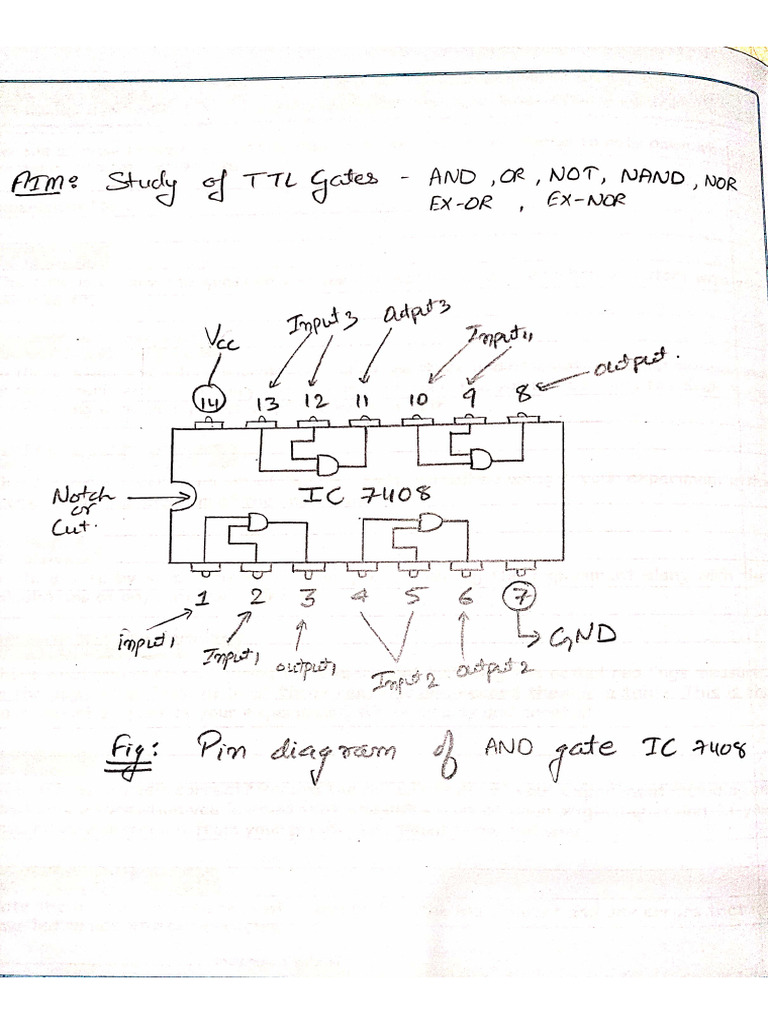 AIM: Study of TTL Gates - AND, OR, NOT, NAND, NOR
EX-OR, EX-NOR
Vcc
Input3
Output3
Input4
output.
14 13 12 11 10 9 8
Notch
or
Cut.
IC 7408
1 2 3 4 5 6 7
input1
Input1
output1
Input2
output2
GND
Fig: Pin diagram of AND gate IC 7408